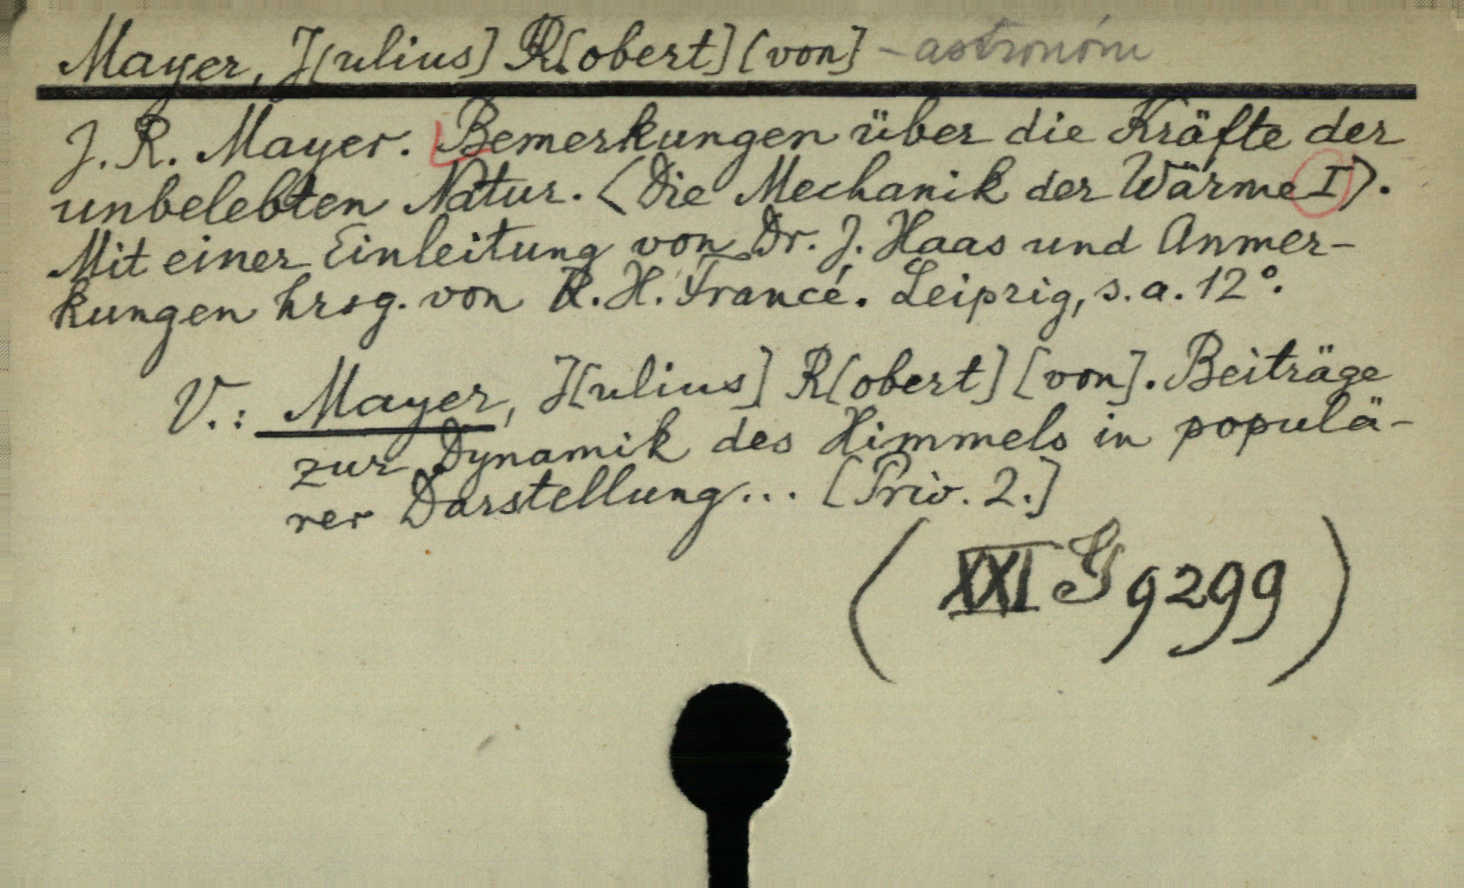 Mayer, J[ulius] R[obert] [von] - astronóm
J. R. Mayer. Bemerkungen über die Kräfte der
unbelebten Natur. <Die Mechanik der Wärme I>.
Mit einer Einleitung von Dr. J. Haas und Anmer-
kungen hrsg. von R. H. Francé. Leipzig, s. a. 12°.
V.: Mayer, J[ulius] R[obert] [von]. Beiträge
zur Dynamik des Himmels in populä-
rer Darstellung... [Priv. 2.]
(XXI G 9299)